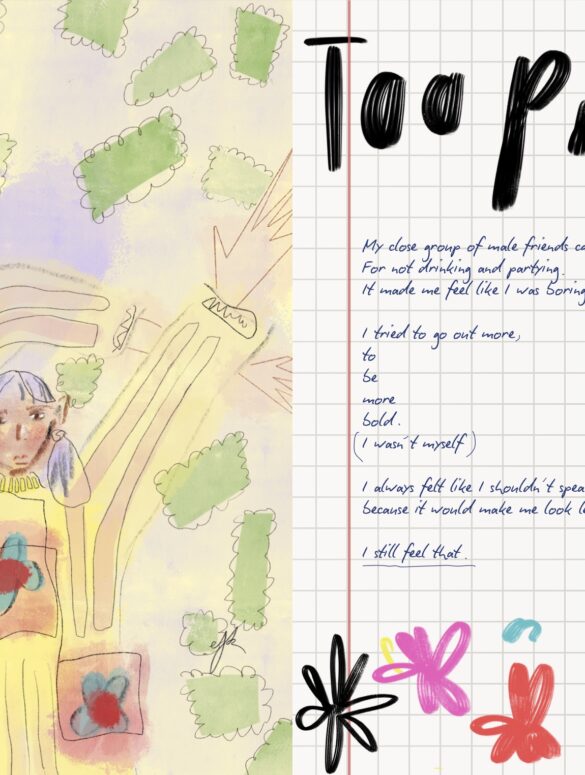 Too Pr
My close group of male friends ca
For not drinking and partying.
It made me feel like I was boring
I tried to go out more,
to
be
more
bold.
(I wasn't myself)
I always felt like I shouldn't spea
because it would make me look le
I still feel that.